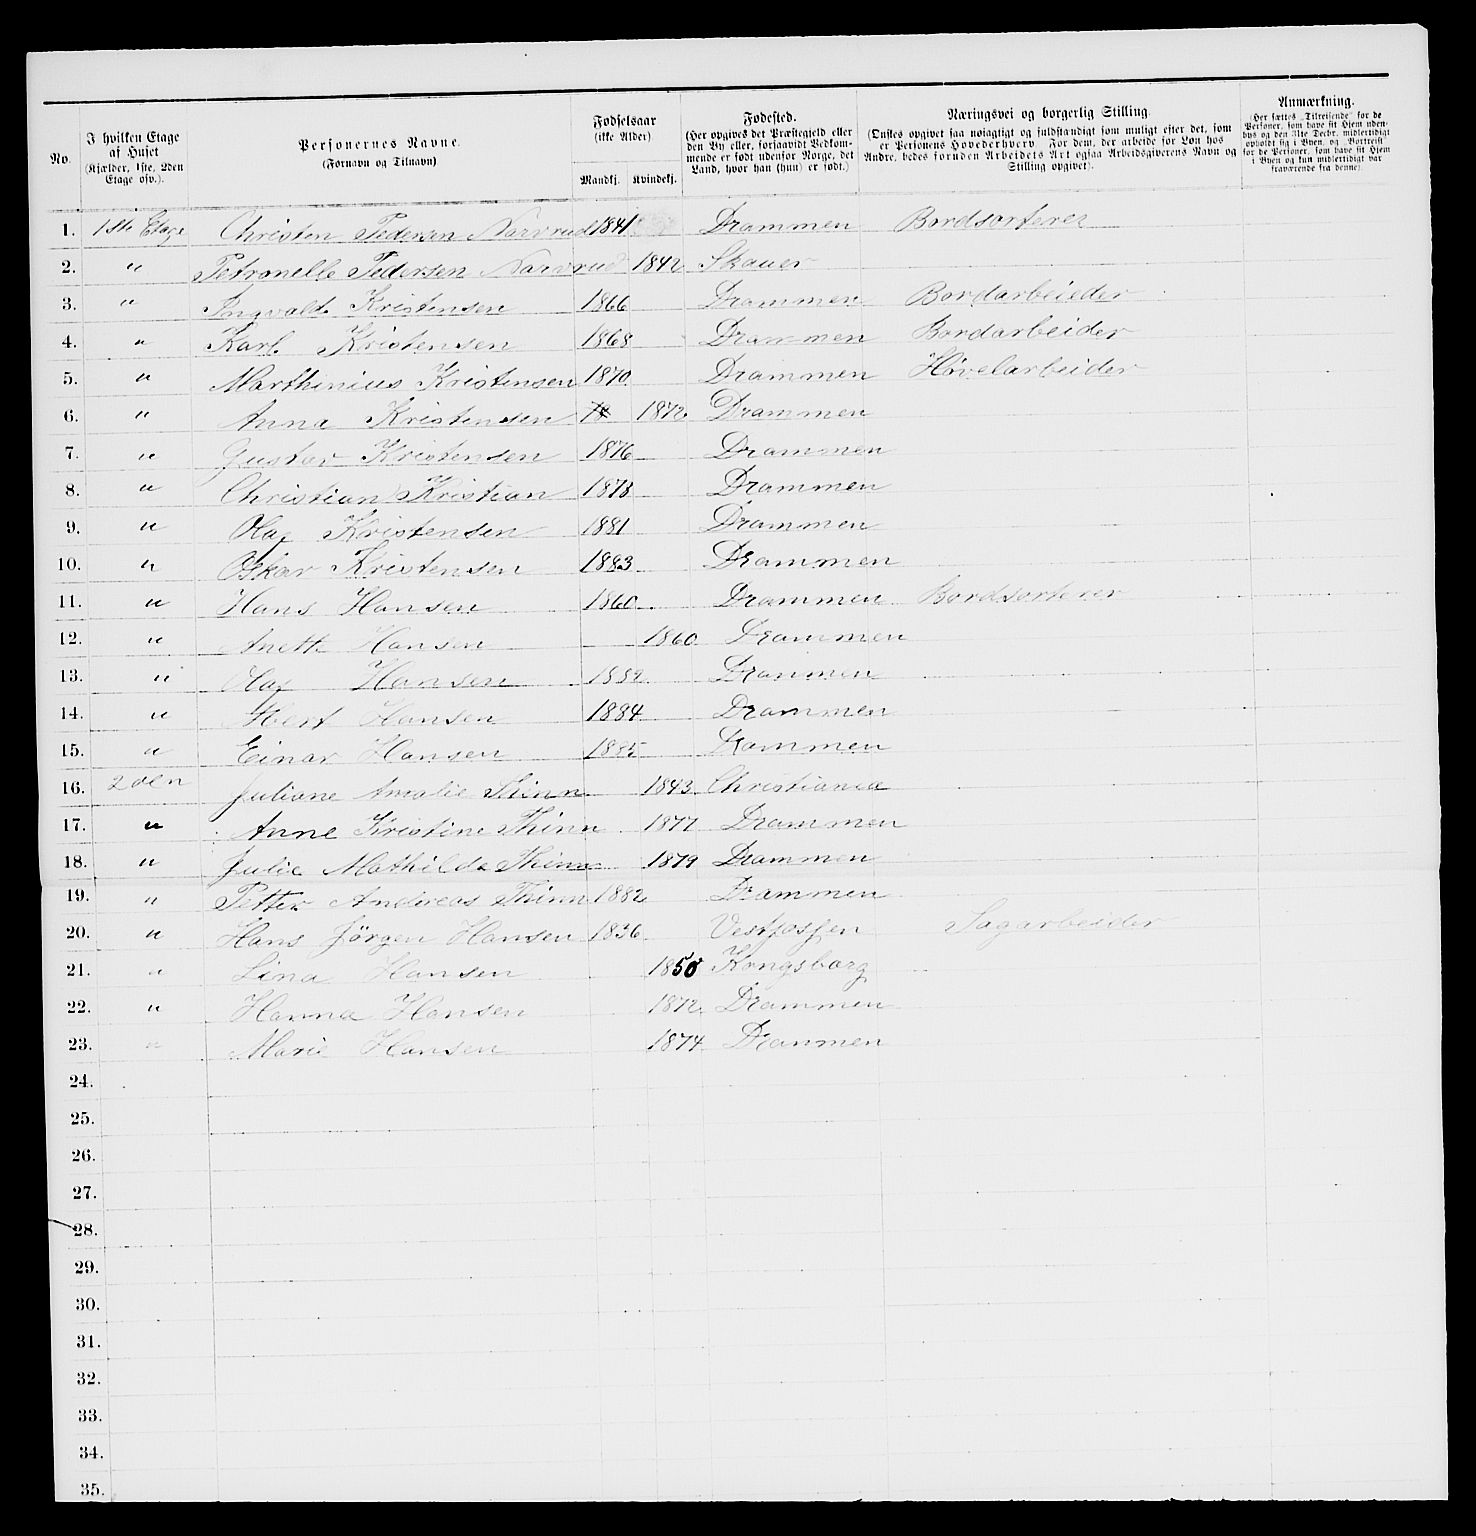 No.
I hvilken Etage af Huset (Kjælder, 1ste, 2den Etage osv.).
Personernes Navne. (Fornavn og Tilnavn)
Fødselsaar (ikke Alder) Mandkj. Kvindekj.
Fødested. (Her opgives det Præstegjeld eller den By eller, forsaavidt Vedkommende er født udenfor Norge, det Land, hvor han (hun) er født.)
Næringsvei og borgerlig Stilling. (Ønskes opgivet saa nøiagtigt og fuldstændigt som muligt efter det, som er Personens Hovederhverv. For dem, der arbeide for Løn hos Andre, bedes foruden Arbeidets Art ogsaa Arbeidsgiverens Navn og Stilling opgivet).
Anmærkning. (Her sættes „Tilreisende" for de Personer, som have sit Hjem udenbys og den 31te Decbr. midlertidigt opholdt sig i Byen, og „Bortreist" for de Personer, som have sit Hjem i Byen og kun midlertidigt var fraværende fra denne).
1. 1ste Etage Christen Pedersen Narvrud 1841 Drammen Bordsorterer
2. " Petronelle Pedersen Narvrud 1842 Skauer
3. " Ingvald Kristensen 1866 Drammen Bordarbeieder
4. " Karl Kristensen 1868 Drammen Bordarbeider
5. " Marthinius Kristensen 1870 Drammen Hövelarbeider
6. " Anna Kristensen 18 1872 Drammen
7. " Gustav Kristensen 1876 Drammen
8. " Christian Kristian 1878 Drammen
9. " Olaf Kristensen 1881 Drammen
10. " Oskar Kristensen 1883 Drammen
11. " Hans Hansen 1860 Drammen Bordsorterer
12. " Anette Hansen 1860 Drammen
13. " Olaf Hansen 1882 Drammen
14. " Albert Hansen 1884 Drammen
15. " Einar Hansen 1885 Drammen
16. 2den Juliane Amalie Thinn 1843 Christiania
17. " Anne Kristine Thinn 1877 Drammen
18. " Julie Mathilde Thinn 1879 Drammen
19. " Petter Andreas Thinn 1882 Drammen
20. " Hans Jörgen Hansen 1836 Vestfossen Sagarbeider
21. " Lina Hansen 1850 Kongsbarg
22. " Hanna Hansen 1872 Drammen
23. " Marie Hansen 1874 Drammen
24.
25.
26.
27.
28.
29.
30.
31.
32.
33.
34.
35.